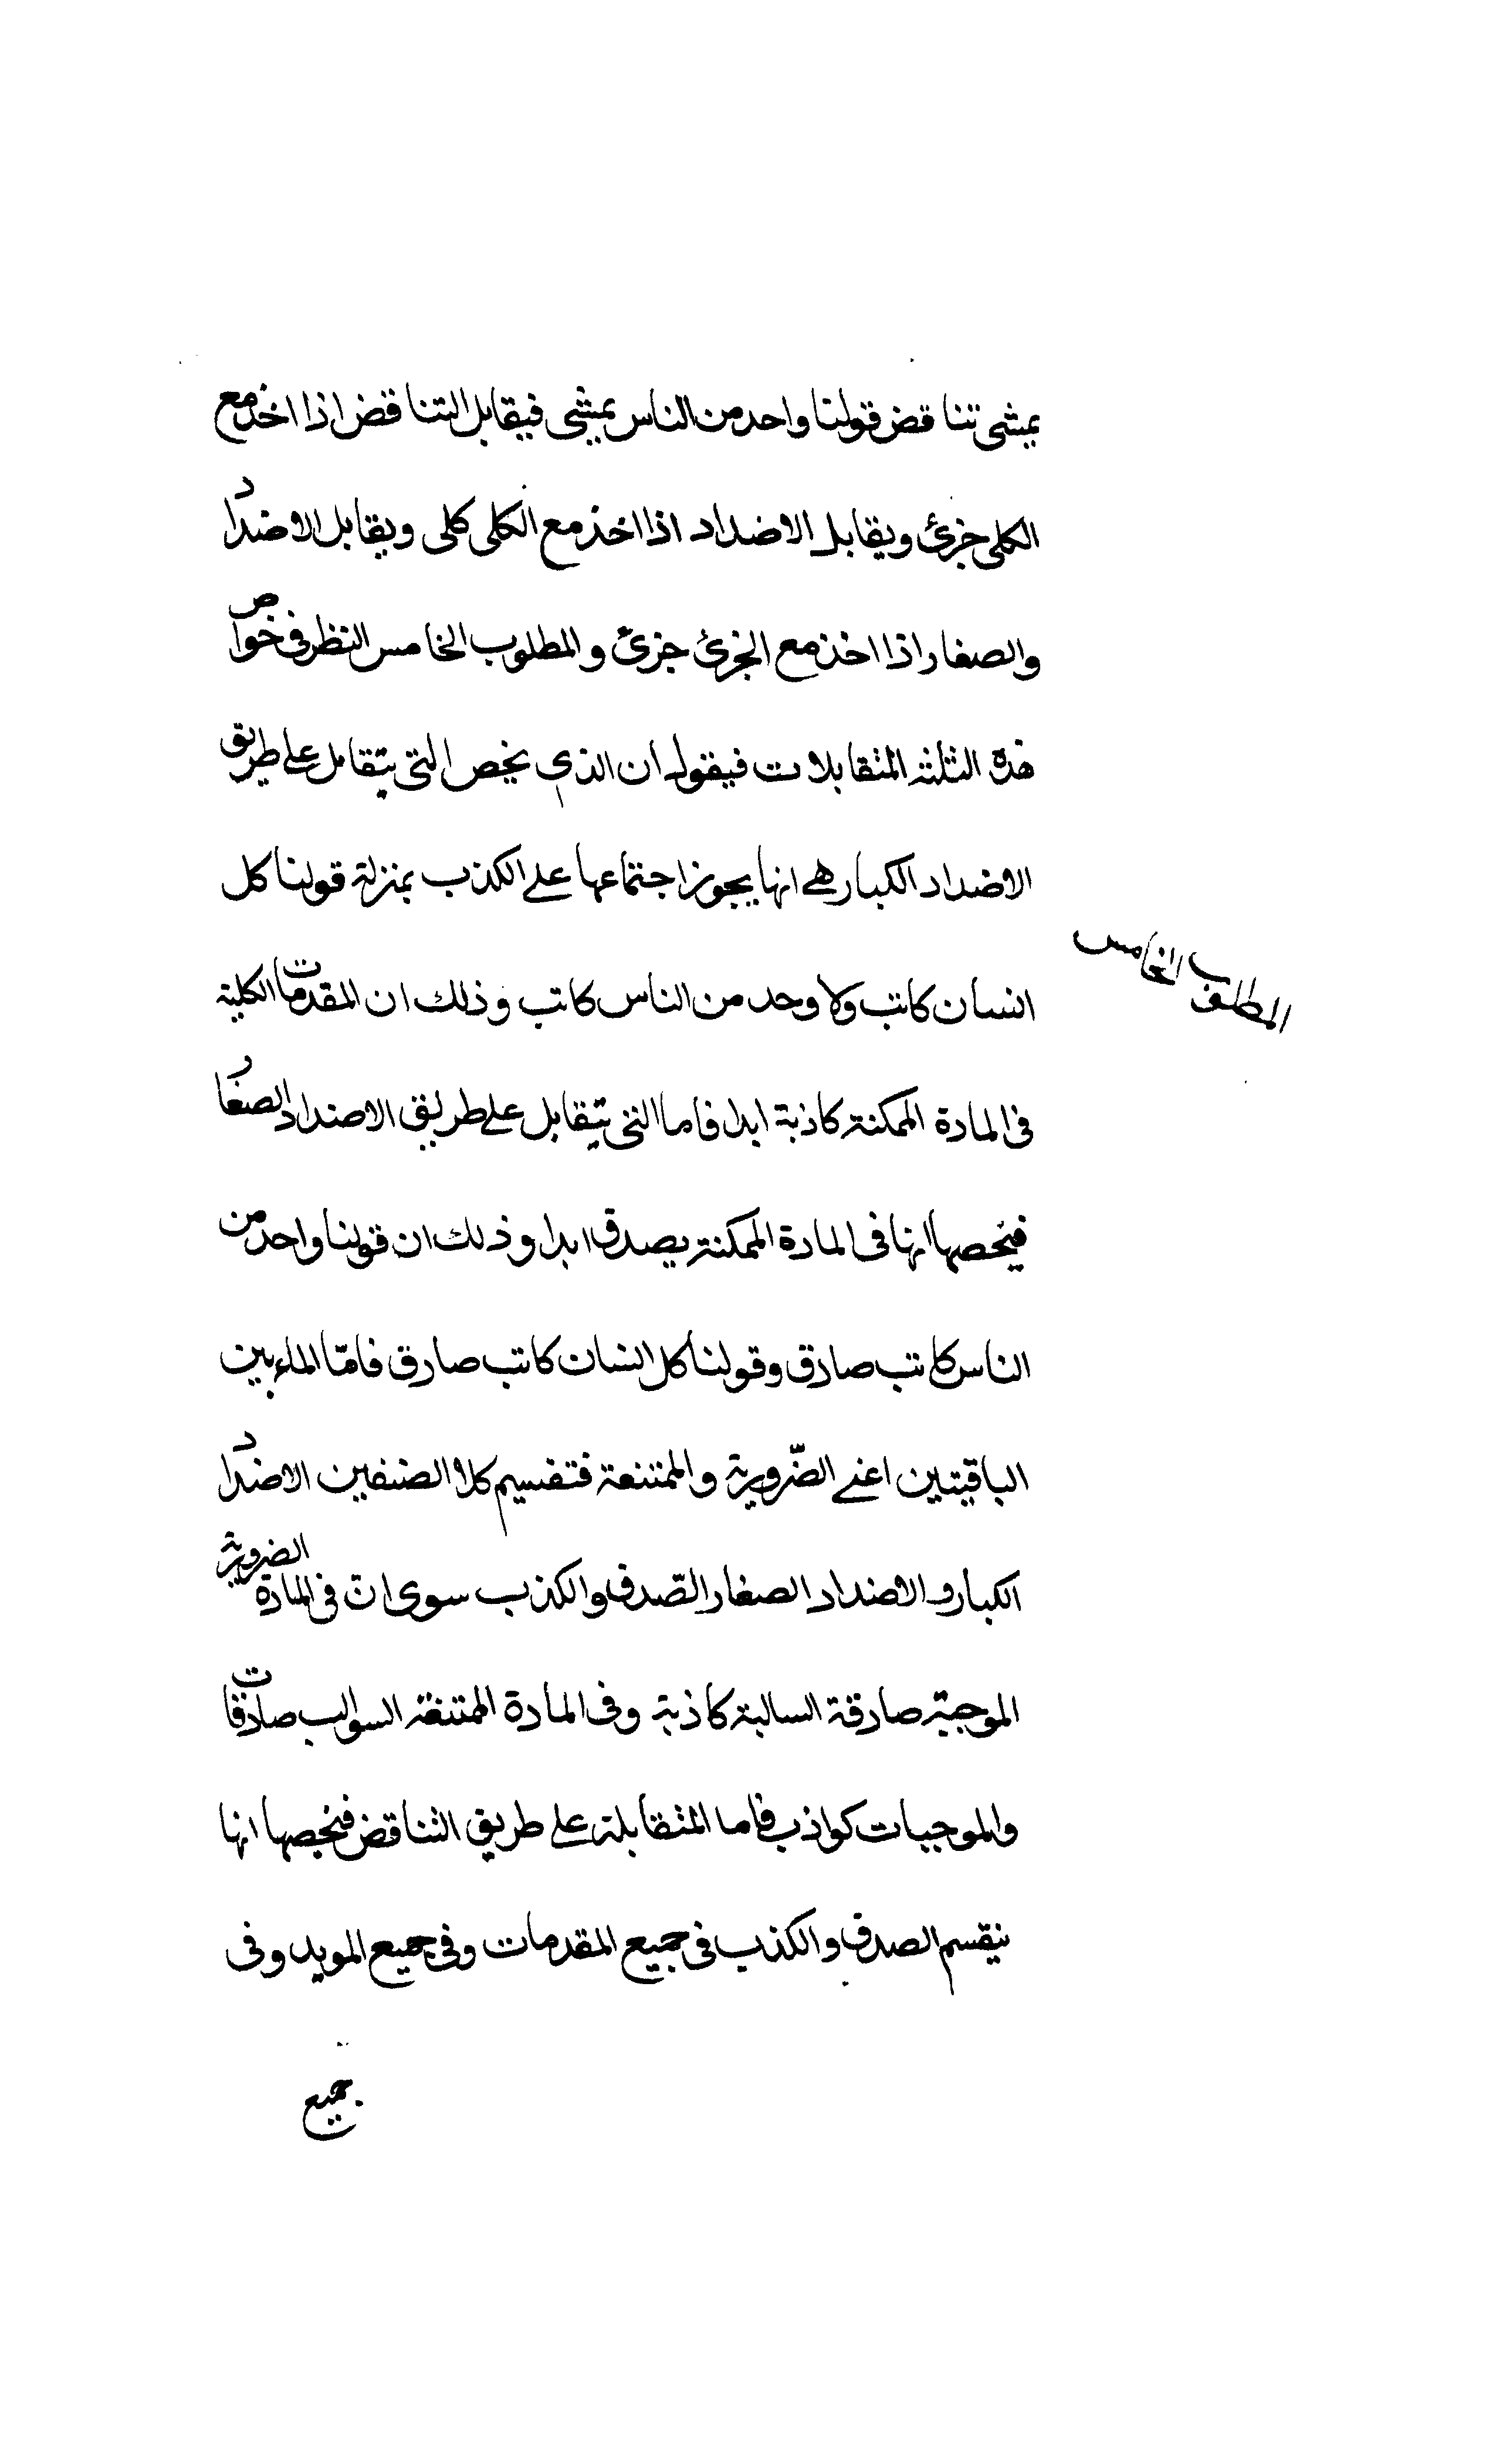 يمشى تناقض قولنا واحد من الناس يمشى فيقابل التناقض اذا اخذ مع
الكلى جزئ ويقابل الاضداد اذا اخذ مع الكلى كلى ويقابل الاضداد
والصغار اذا اخذ مع الجزئ جزئ والمطلوب الخامس النظر فى خواص
هذه الثلثة المتقابلات فيقول ان الذى يخص التى يتقابل على طريق
الاضداد الكبار هى انها يجوز اجتماعها على الكذب بمنزلة قولنا كل
المطلوب الخامس
انسان كاتب ولا وحد من الناس كاتب وذلك ان المقدمات الكلية
فى المادة الممكنة كاذبة ابدا فاما التى يتقابل على طريق الاضداد الصغار
فيخصها انها فى المادة الممكنة يصدق ابدا وذلك ان قولنا واحد من
الناس كاتب صادق وقولنا كل انسان كاتب صادق فامّا المادبين
الباقيتين اعنى الضّرورية والممتنعة فتقسيم كلا الصنفين الاضداد
الكبار والاضداد الصغار الصّدق والكذب سوى ان فى المادة الضرورية
الموجبة صادقة السالبة كاذبة وفى المادة الممتنعة السوالب صادقات
والموجبات كواذب فاما المتقابلة على طريق التناقض فيخصها انها
ينقسم الصدق والكذب فى جميع المقدمات وفى جميع المويد وفى
جميع